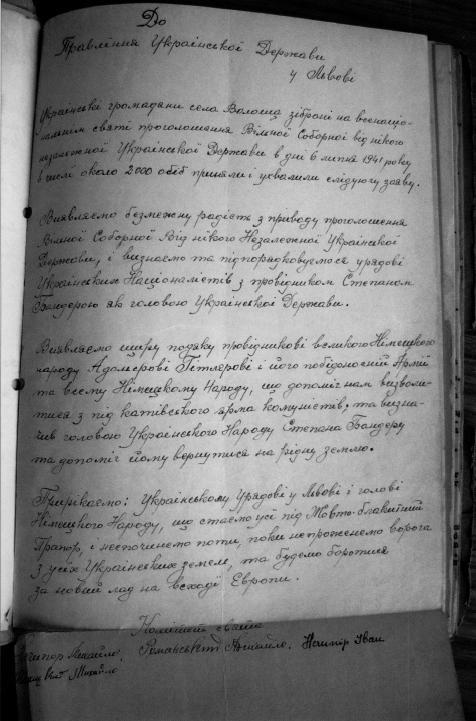 До
Правління Української Держави
у Львові
Українські громадяни села Волоща зібрані на всенаціо-
нальнім святі проголошення Вільної Соборної від нікого
незалежної Української Держави в дні 6 липня 1941 року
в числі около 2000 осіб приняли і ухвалили слідуючу заяву.
Виявляємо безмежну радість з приводу проголошення
Вільної Соборної Від нікого Незалежної Української
Держави, і визнаємо та підпорядковуємося урядові
Українських Націоналістів з провідником Степаном
Бандерою як головою Української Держави.
Виявляємо щиру подяку провідникові великого Німецького
народу Адольфові Гітлєрові і його побідоносній Армії
та всему Німецькому Народу, що допоміг нам визволи-
тися з під катівського ярма комуністів, та визна-
чив головою Українського Народу Степана Бандеру
та допоміг йому вернутися на рідну землю.
Прирікаємо: Українському Урядові у Львові і голові
Німецького Народу, що стаємо усі під Жовто-блакитний
Прапор, і неспочинемо поти, поки непроженемо ворога
з усіх Українських земель, та будемо боротися
за новий лад на всході Европи.
Комітет свята
Михайло, Романський Михайло, Нечипір Іван
Михайло